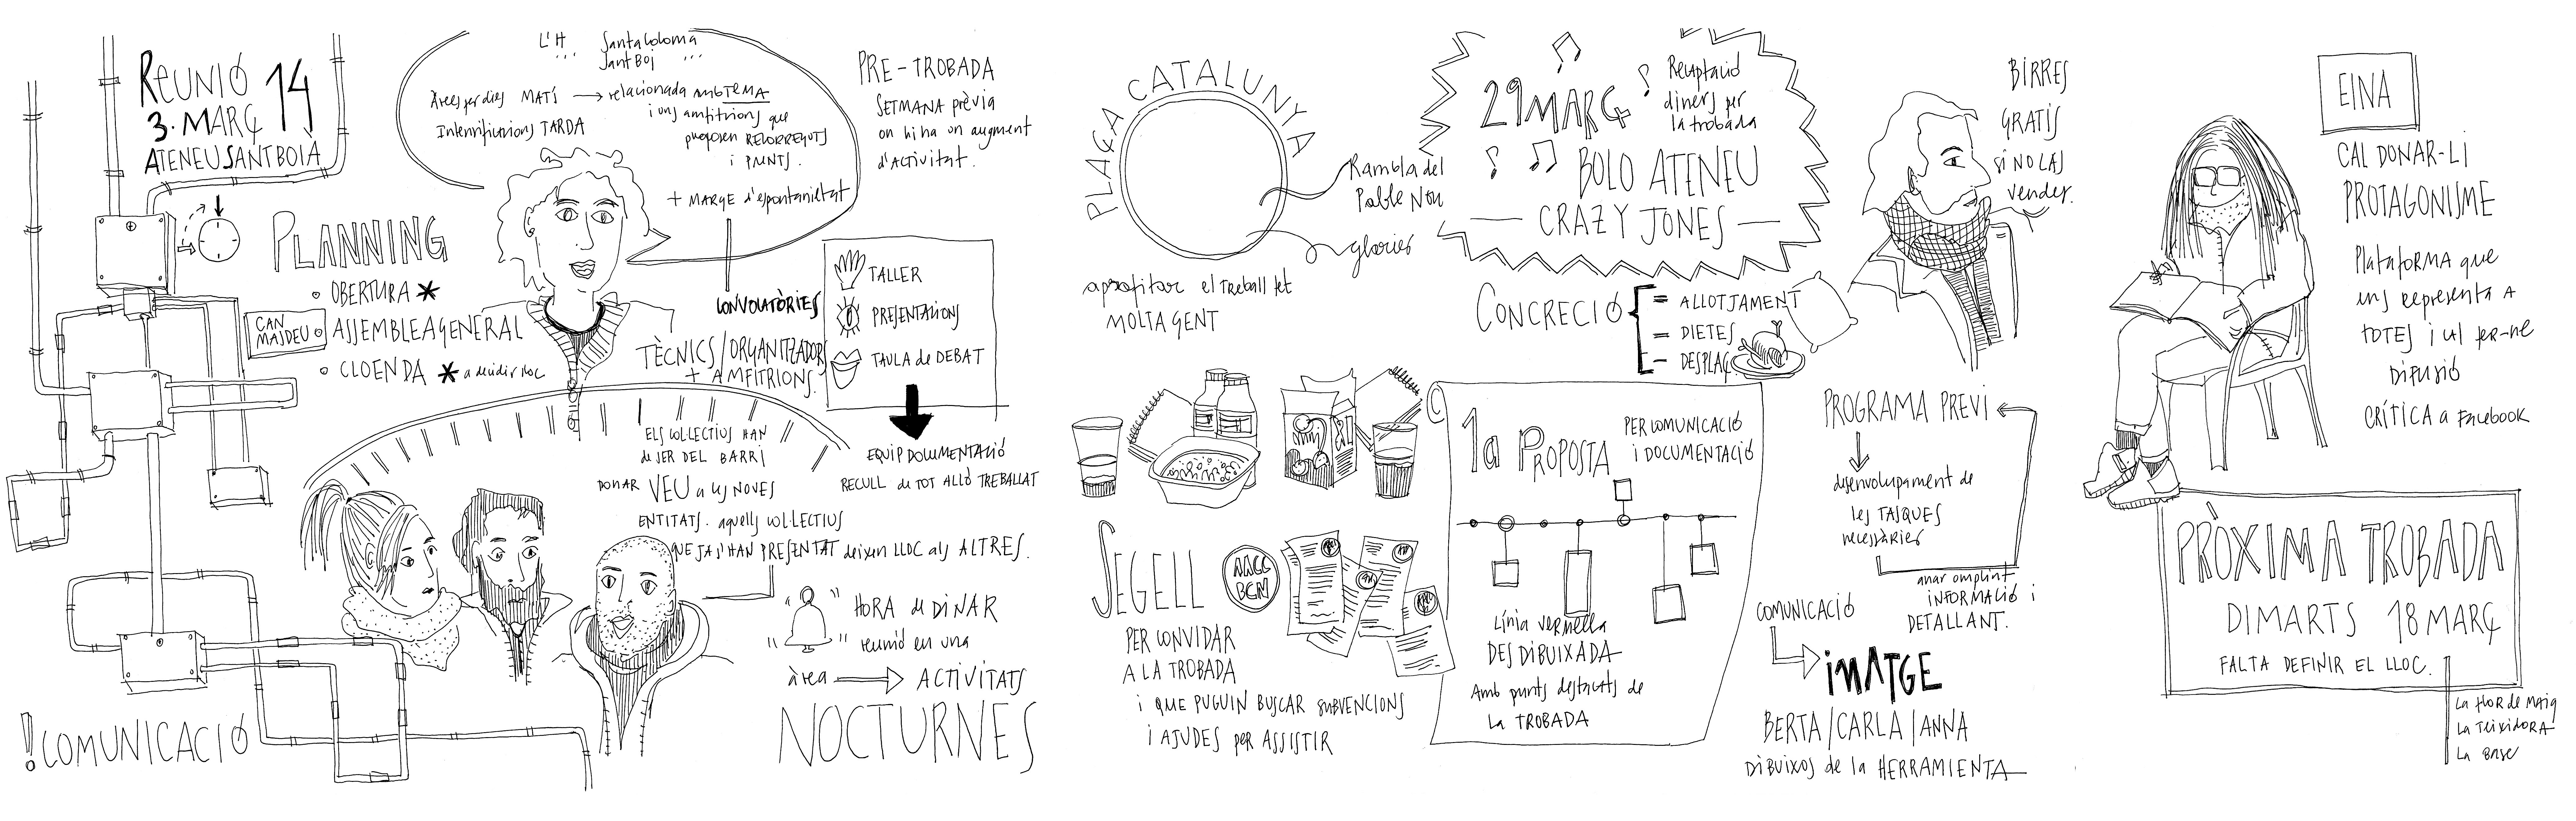 REUNIÓ 14
3. MARÇ
ATENEU SANTBOIÀ
PLANNING
OBERTURA *
CAN MASDEU
ASSEMBLEA GENERAL
CLOENDA * a decidir lloc
! COMUNICACIÓ
L'H Santa Coloma
Sant Boi
Àrees per dies MATÍ → relacionada amb TEMA
i uns amfitrions que
proposen RECORREGUTS
i PUNTS.
TARDA
+ MARGE d'espontanïetat
CONVOCATÒRIES
TÈCNICS/ORGANITZADORS
+ AMFITRIONS
PRE-TROBADA
SETMANA prèvia
on hi ha un augment
d'ACTIVITAT.
TALLER
PRESENTACIONS
TAULA de DEBAT
EQUIP DOCUMENTACIÓ
RECULL de TOT ALLÒ TREBALLAT
ELS COL·LECTIUS HAN
de SER DEL BARRI
DONAR VEU a les NOVES
ENTITATS. aquells COL·LECTIUS
QUE JA S'HAN PRESENTAT deixen LLOC als ALTRES.
HORA de DINAR
reunió en una
àrea → ACTIVITATS
NOCTURNES
PLAÇA CATALUNYA
Rambla del
Poble Nou
glòries
aprofitar el treball fet
MOLTA GENT
29 MARÇ
Recuptació
diners per
la trobada
BOLO ATENEU
CRAZY JONES
BIRRES
GRATIS
si NO LAS
vendes.
CONCRECIÓ
= ALLOTJAMENT
= DIETES
- DESPLAÇ.
SEGELL
AACC
BCN
PER CONVIDAR
A LA TROBADA
i QUE PUGUIN BUSCAR SUBVENCIONS
i AJUDES per ASSISTIR
1a PROPOSTA
PER COMUNICACIÓ
i DOCUMENTACIÓ
Línia vermella
DESDIBUIXADA
Amb punts destacats de
La TROBADA
PROGRAMA PREVI
desenvolupament de
les TASQUES
necessàries
anar omplint
INFORMACIÓ i
DETALLANT.
COMUNICACIÓ
iMATGE
BERTA/CARLA/ANNA
DIBUIXOS de la HERRAMIENTA
EINA
CAL DONAR-LI
PROTAGONISME
PlataforMA que
ens representa A
TOTES i cal fer-ne
DIFUSIÓ
CRÍTICA a Facebook
PRÒXIMA TROBADA
DIMARTS 18 MARÇ
FALTA DEFINIR EL LLOC.
La Flor de Maig
La Teixidora
La Base